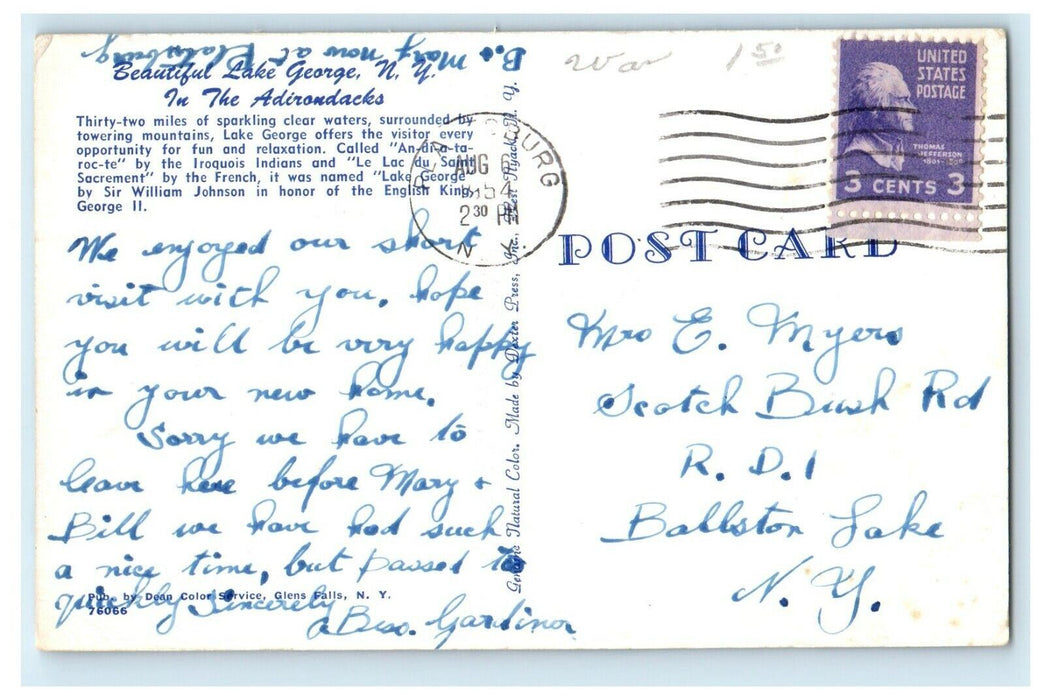 B. & Mary now at Plattsburg
War 1.50
Beautiful Lake George, N. Y.
In The Adirondacks
Thirty-two miles of sparkling clear waters, surrounded by
towering mountains, Lake George offers the visitor every
opportunity for fun and relaxation. Called "An-dia-ta-
roc-te" by the Iroquois Indians and "Le Lac du Saint
Sacrement" by the French, it was named "Lake George"
by Sir William Johnson in honor of the English King,
George II.
PLATTSBURG
AUG 6
1954
2 30 PM
N. Y.
UNITED
STATES
POSTAGE
THOMAS
JEFFERSON
3 CENTS 3
We enjoyed our short
visit with you, hope
you will be very happy
in your new home.
Sorry we have to
leave here before Mary &
Bill we have had such
a nice time, but passed to
quickly Sincerely
Pub. by Dean Color Service, Glens Falls, N. Y.
76066
Genuine Natural Color. Made by Dexter Press, Inc., West Nyack, N. Y.
POST CARD
Mrs E. Myers
Scotch Bush Rd
R. D. 1
Ballston Lake
N. Y.